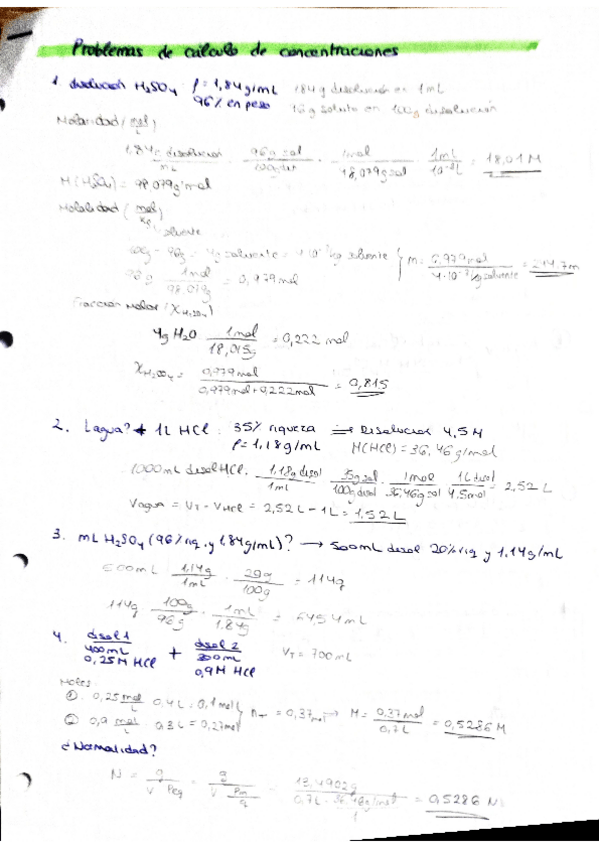 Problemas de cálculo de concentraciones
1. disolución H₂SO₄ ρ = 1,84 g/mL 1,84 g disolución en 1 mL
96% en peso 96 g soluto en 100g disolución
Molaridad (mol/L)
1,84g disolución/mL · 96g sol/100g dis · 1mol/98,079g sol · 1mL/10⁻³L = 18,01 M
M(H₂SO₄) = 98,079 g/mol
Molalidad (mol/kg solvente)
100g - 96g = 4g solvente = 4·10⁻³ kg solvente } m = 0,979 mol/4·10⁻³ kg solvente = 244,7m
96 g 1mol/98,079g = 0,979 mol
Fracción molar (X H₂SO₄)
4g H₂O 1mol/18,015g = 0,222 mol
X H₂SO₄ = 0,979mol/0,979mol+0,222mol = 0,815
2. L agua? + 1L HCl : 35% riqueza ⟹ Disolución 4,5M
ρ = 1,18 g/mL M(HCl) = 36,46 g/mol
1000mL disol HCl · 1,18g disol/1mL · 35g sol/100g disol · 1mol/36,46g sol · 1L disol/4,5mol = 2,52 L
V agua = V_T - V_HCl = 2,52 L - 1L = 1,52L
3. mL H₂SO₄ (96% riq. y 1,84g/mL)? ⟶ 500mL disol 20% riq y 1,14g/mL
500mL · 1,14g/1mL · 20g/100g = 114g
114g · 100g/96g · 1mL/1,84g = 64,54mL
4. disol 1/400mL + disol 2/300mL V_T = 700mL
0,25M HCl 0,9M HCl
Moles:
① 0,25 mol/L · 0,4L = 0,1mol } n_T = 0,37 mol → M = 0,37mol/0,7L = 0,5286 M
② 0,9 mol/L · 0,3L = 0,27mol
¿Normalidad?
N = g/V·Peq = g/V·Pm/q = 13,4902g/0,7L · 36,46g/mol/1 = 0,5286 N